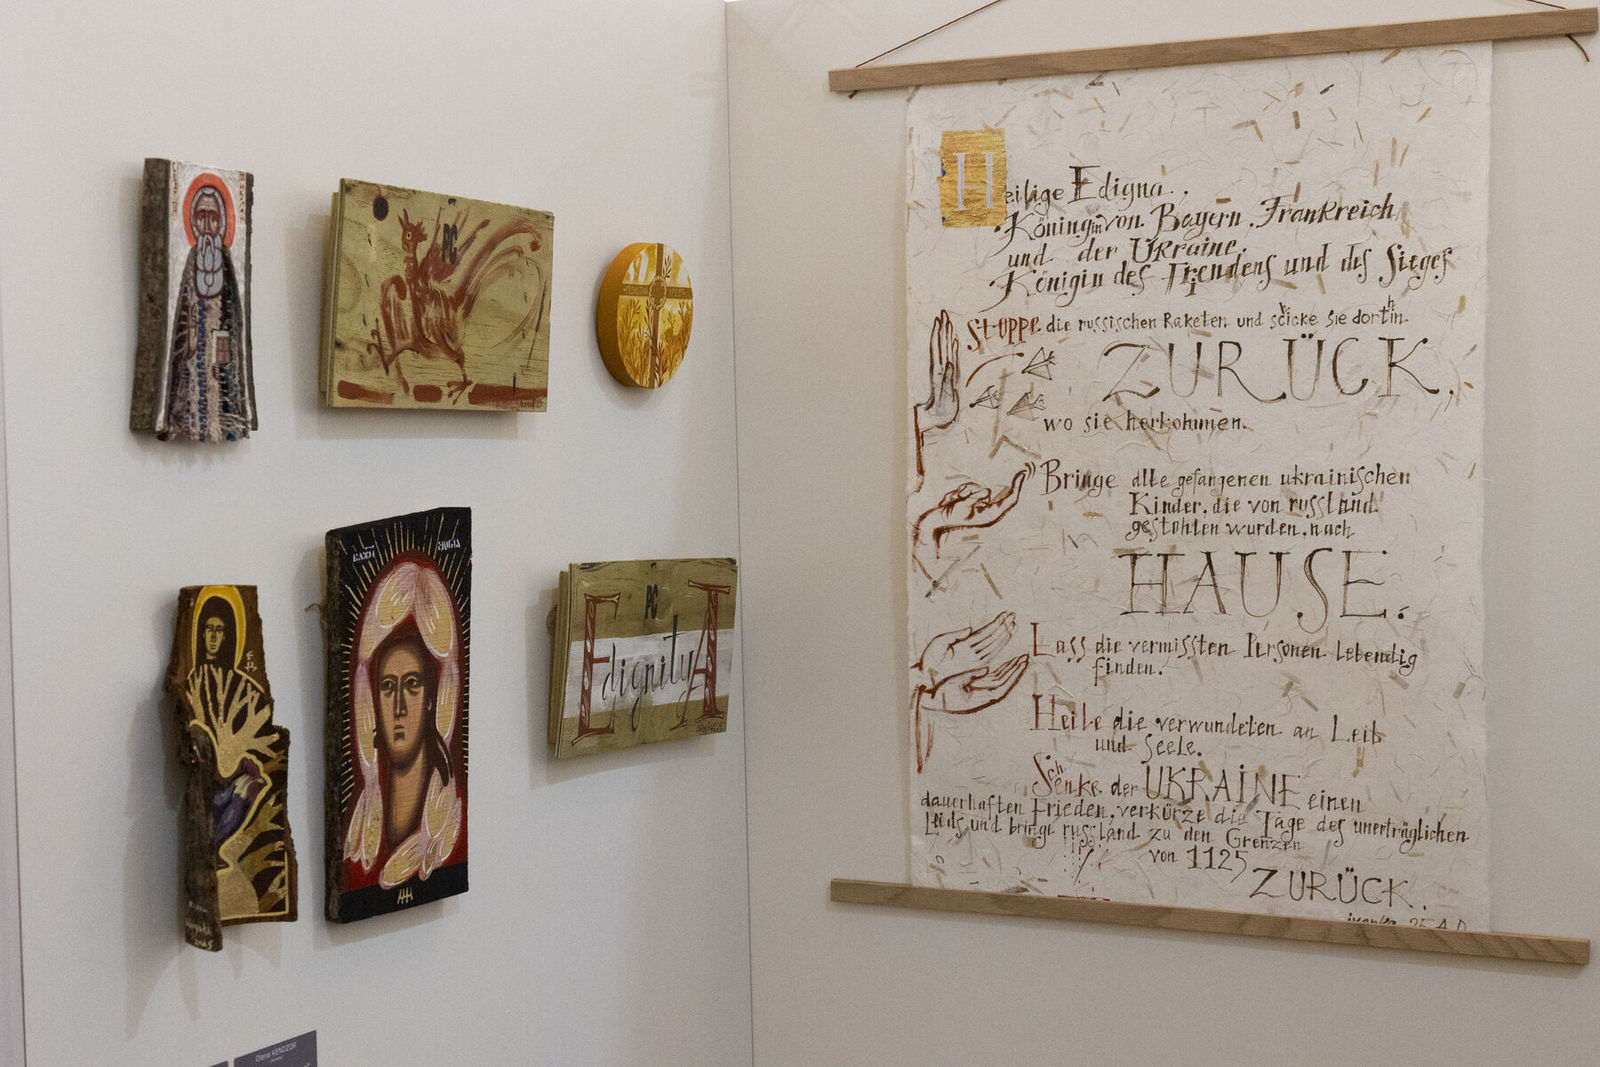 PC
PC
EdignityA
Olena KENDZOR
Heilige Edigna.
Königin von Bayern, Frankreich
und der Ukraine.
Königin des Friedens und des Sieges
Stoppe die russischen Raketen und schicke sie dorthin
ZURÜCK,
wo sie herkommen.
Bringe alle gefangenen ukrainischen
Kinder, die von russland
gestohlen wurden, nach
HAUSE.
Lass die vermissten Personen lebendig
finden.
Heile die verwundeten an Leib
und Seele.
Schenke der UKRAINE einen
dauerhaften Frieden, verkürze die Tage des unerträglichen
Leids und bringe russland zu den Grenzen
von 1125
ZURÜCK.
25 A.D.